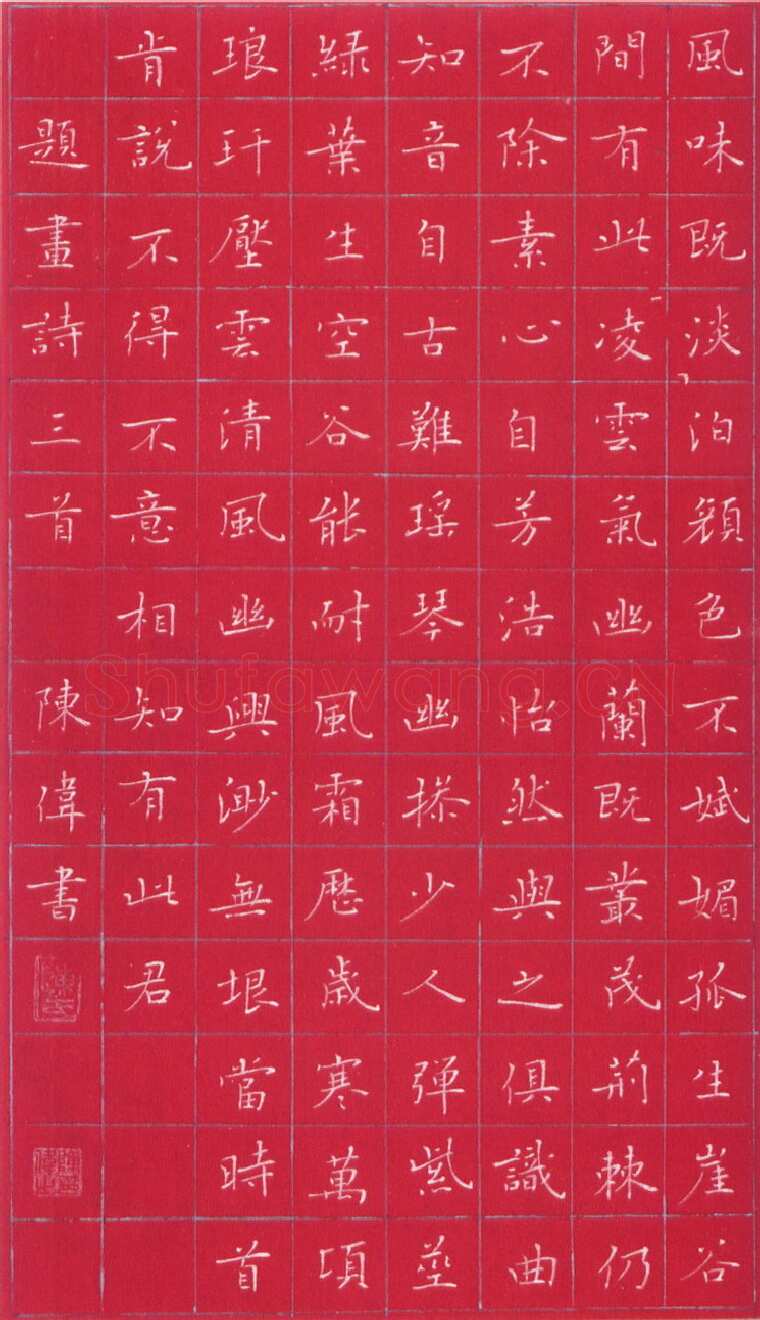 風味既淡泊顔色不娬媚孤生崖谷
間有此凌雲氣幽蘭既叢茂荊棘仍
不除素心自芳浩怡然與之俱識曲
知音自古難瑶琴幽操少人彈紫莖
緑葉生空谷能耐風霜歷歲寒萬頃
琅玕壓雲清風幽興渺無垠當時首
肯説不得不意相知有此君
題畫詩三首 陳偉書
Shufawang.CN